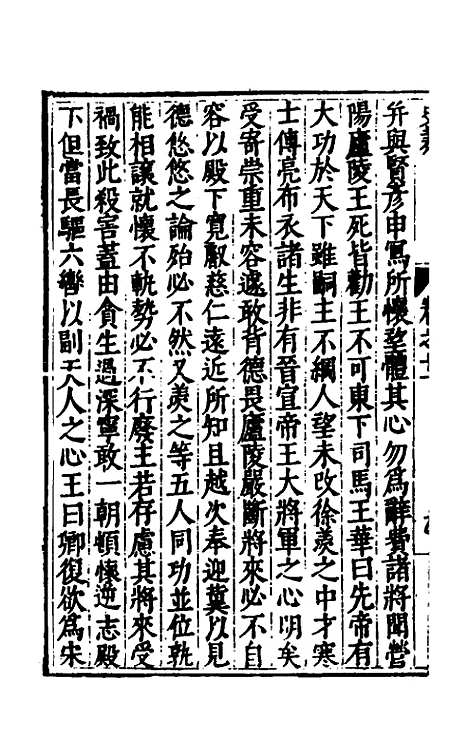 并與賢彦申寫所懷望體其心勿爲辭費諸將聞營
陽廬陵王死皆勸王不可東下司馬王華曰先帝有
大功於天下雖嗣主不綱人望未改徐羨之中才寒
士傅亮布衣諸生非有晉宣帝王大將軍之心明矣
受寄崇重未容遽敢背德畏廬陵嚴斷將來必不自
容以殿下寬叡慈仁遠近所知且越次奉迎冀以見
德悠悠之論殆必不然又羨之等五人同功並位孰
能相讓就懷不軌勢必不行廢主若存慮其將來受
禍致此殺害蓋由貪生過深寧敢一朝頓懷逆志殿
下但當長驅六轡以副天人之心王曰卿復欲爲宋